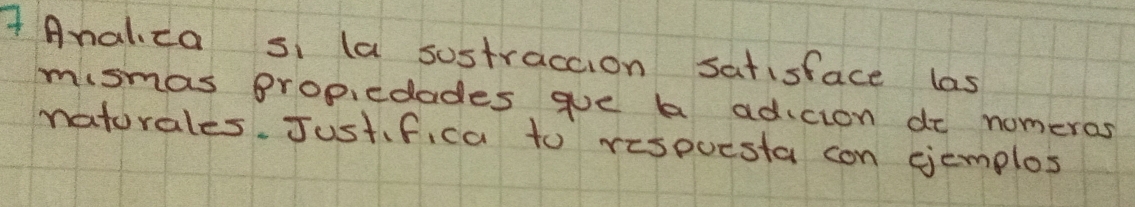 7 Analiza si la sustraccion satisface las
mismas propiedades que la adicion de numeros
naturales. Justifica tu respuesta con ejemplos